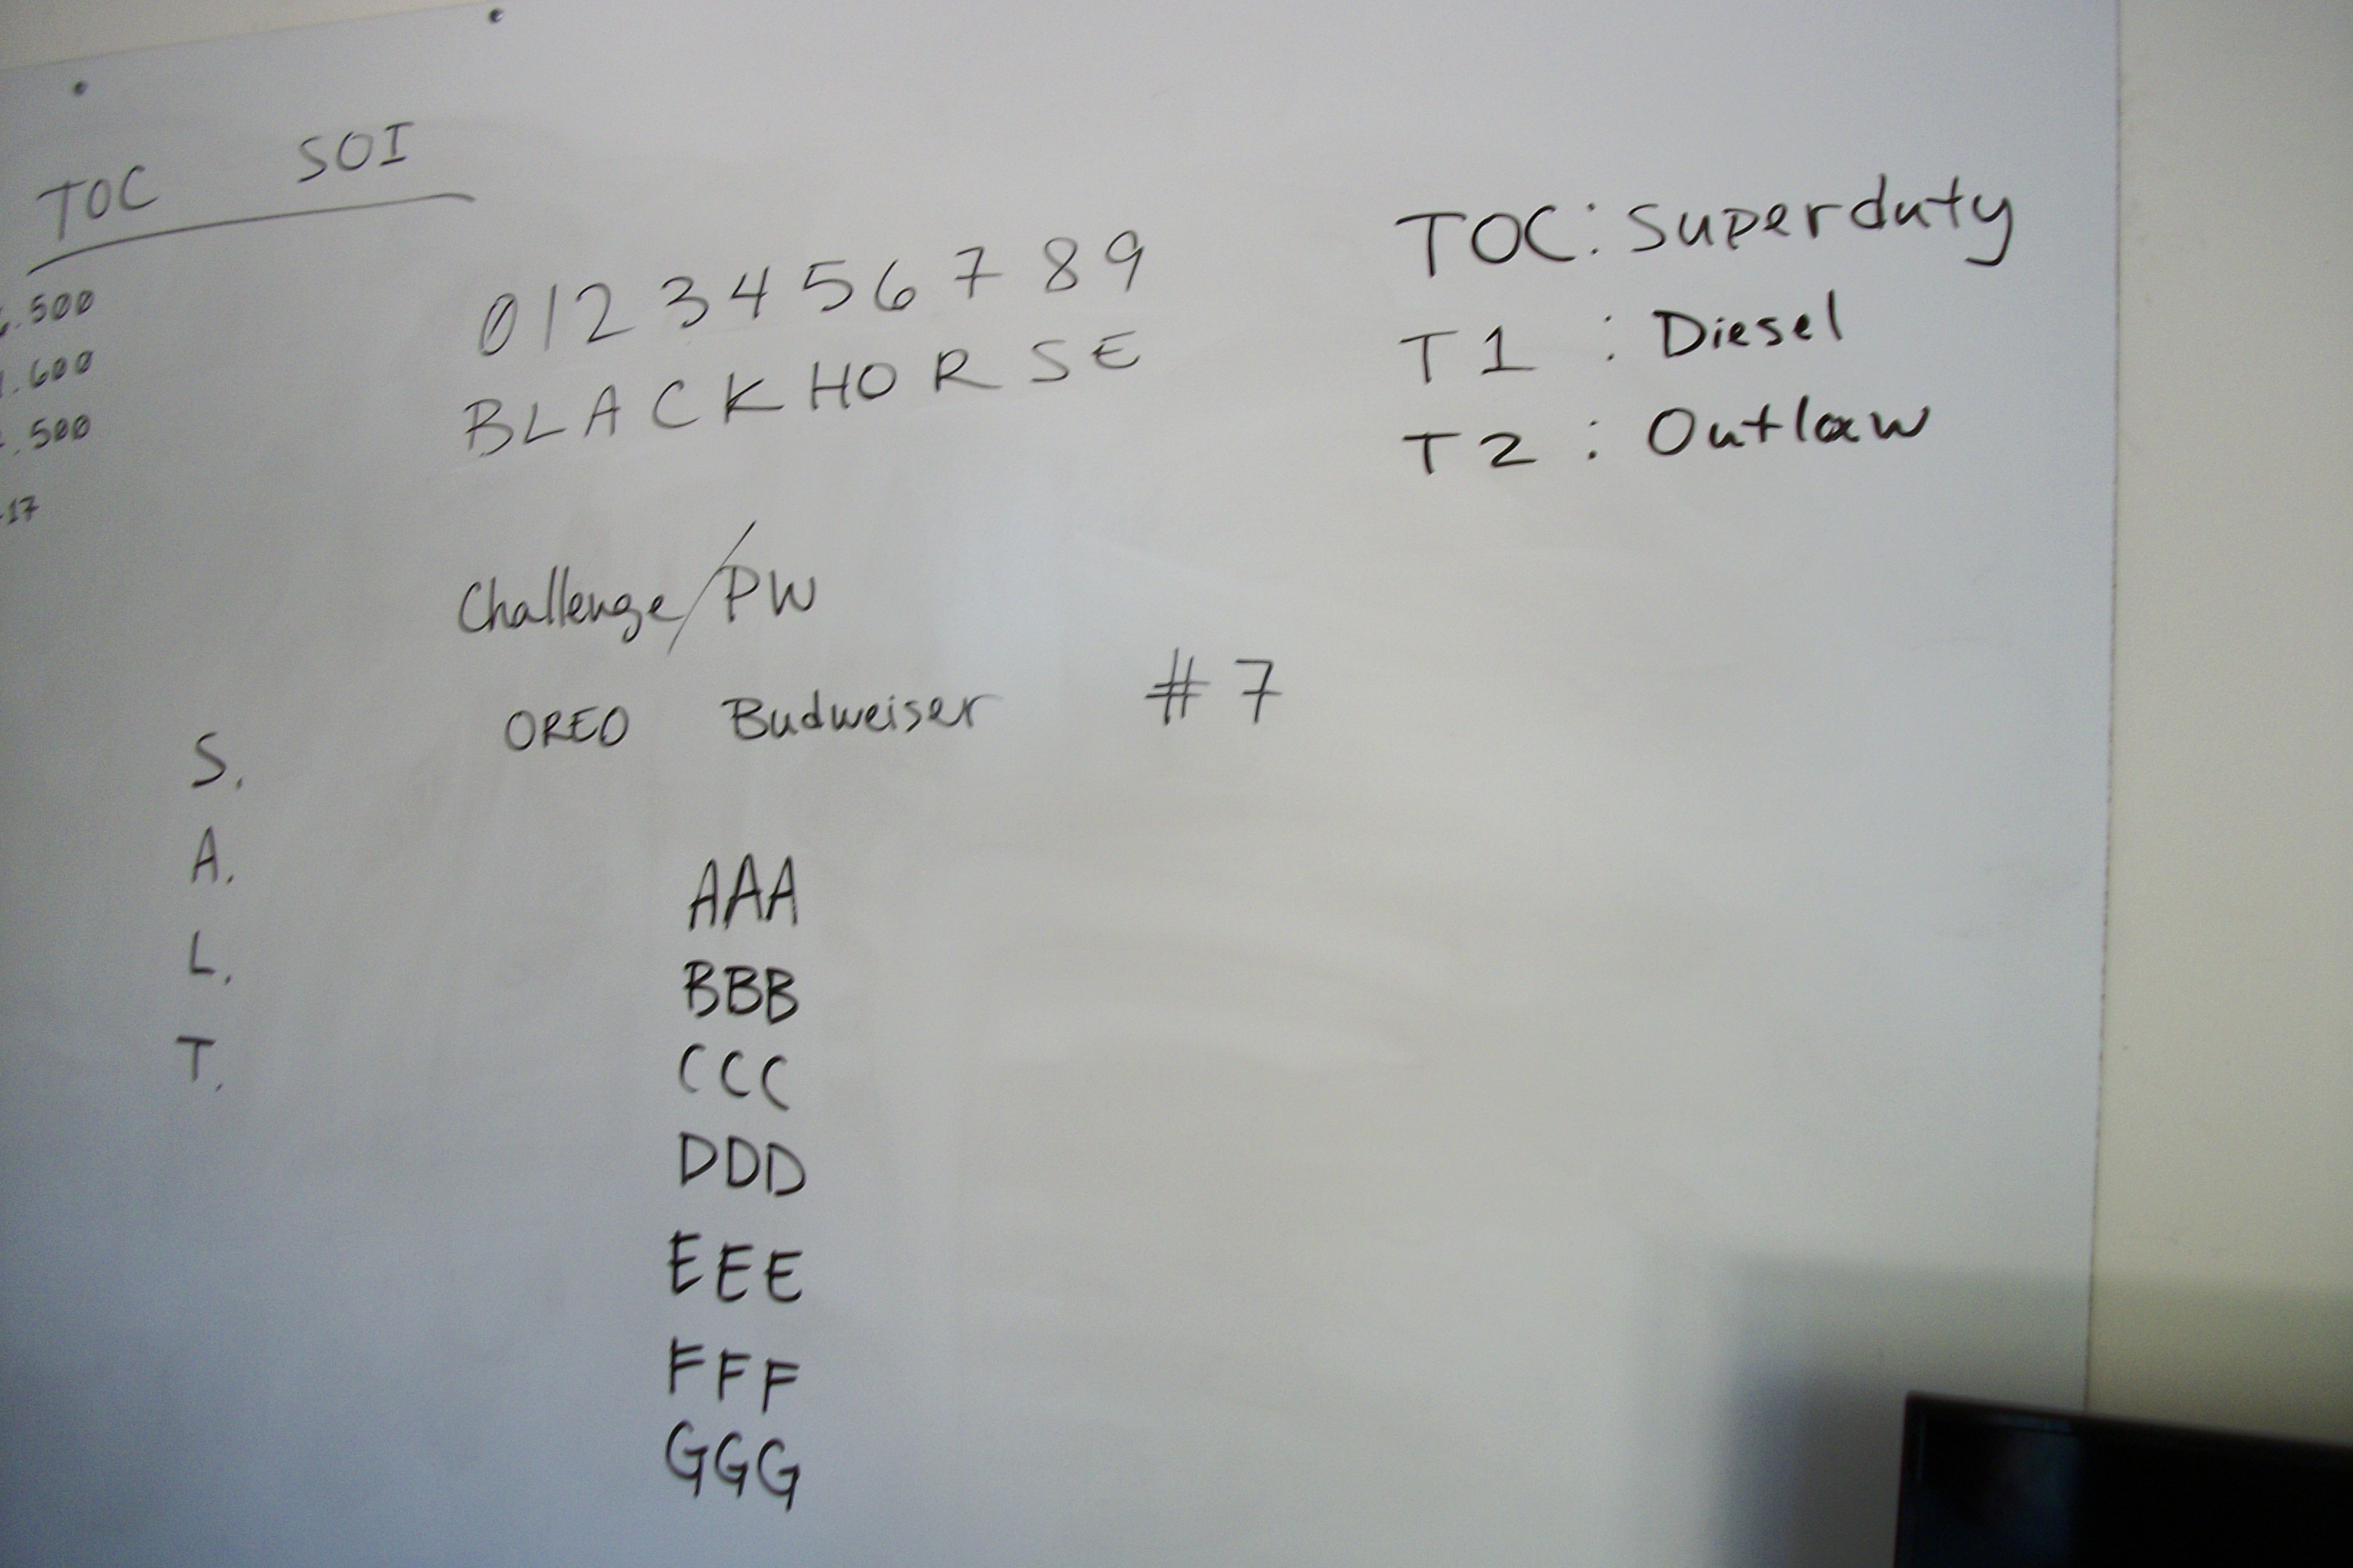 TOC SOI
.500
.600
.500
-17
0 1 2 3 4 5 6 7 8 9
B L A C K H O R S E
TOC: Superduty
T1 : Diesel
T2 : Outlaw
Challenge/PW
OREO Budweiser #7
S.
A.
L.
T.
AAA
BBB
CCC
DDD
EEE
FFF
GGG